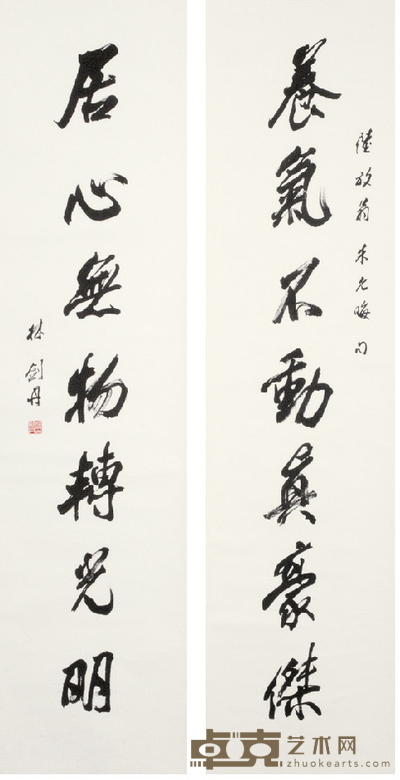 養氣不動真豪傑
陸放翁朱元晦句
居心無物轉光明
林劍丹
卓克艺术网
www.zhuokearts.com